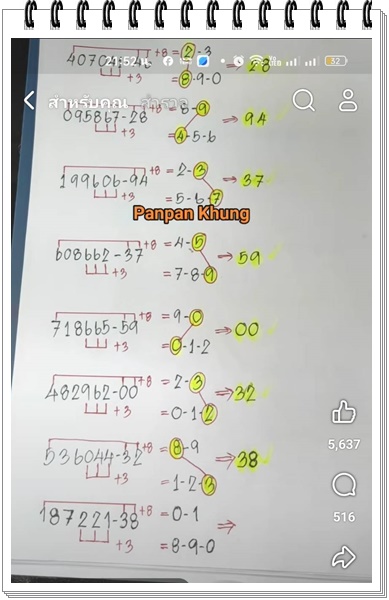 +8 = 2-3
21:52 น.
52
⇒ 28
+3 = 8-9-0
สำหรับคุณ สำรวจ
095867-28 = 8-9
⇒ 94
+3 = 4-5-6
199606-94 +8 = 2-3
⇒ 37
+3 = 5-6-7
Panpan Khung
608662-37 +8 = 4-5
⇒ 59
+3 = 7-8-9
718665-59 +8 = 9-0
⇒ 00
+3 = 0-1-2
482962-00 +8 = 2-3
⇒ 32
+3 = 0-1-2
536044-32 +8 = 8-9
⇒ 38
+3 = 1-2-3
187221-38 +8 = 0-1
⇒
+3 = 8-9-0
5,637
516